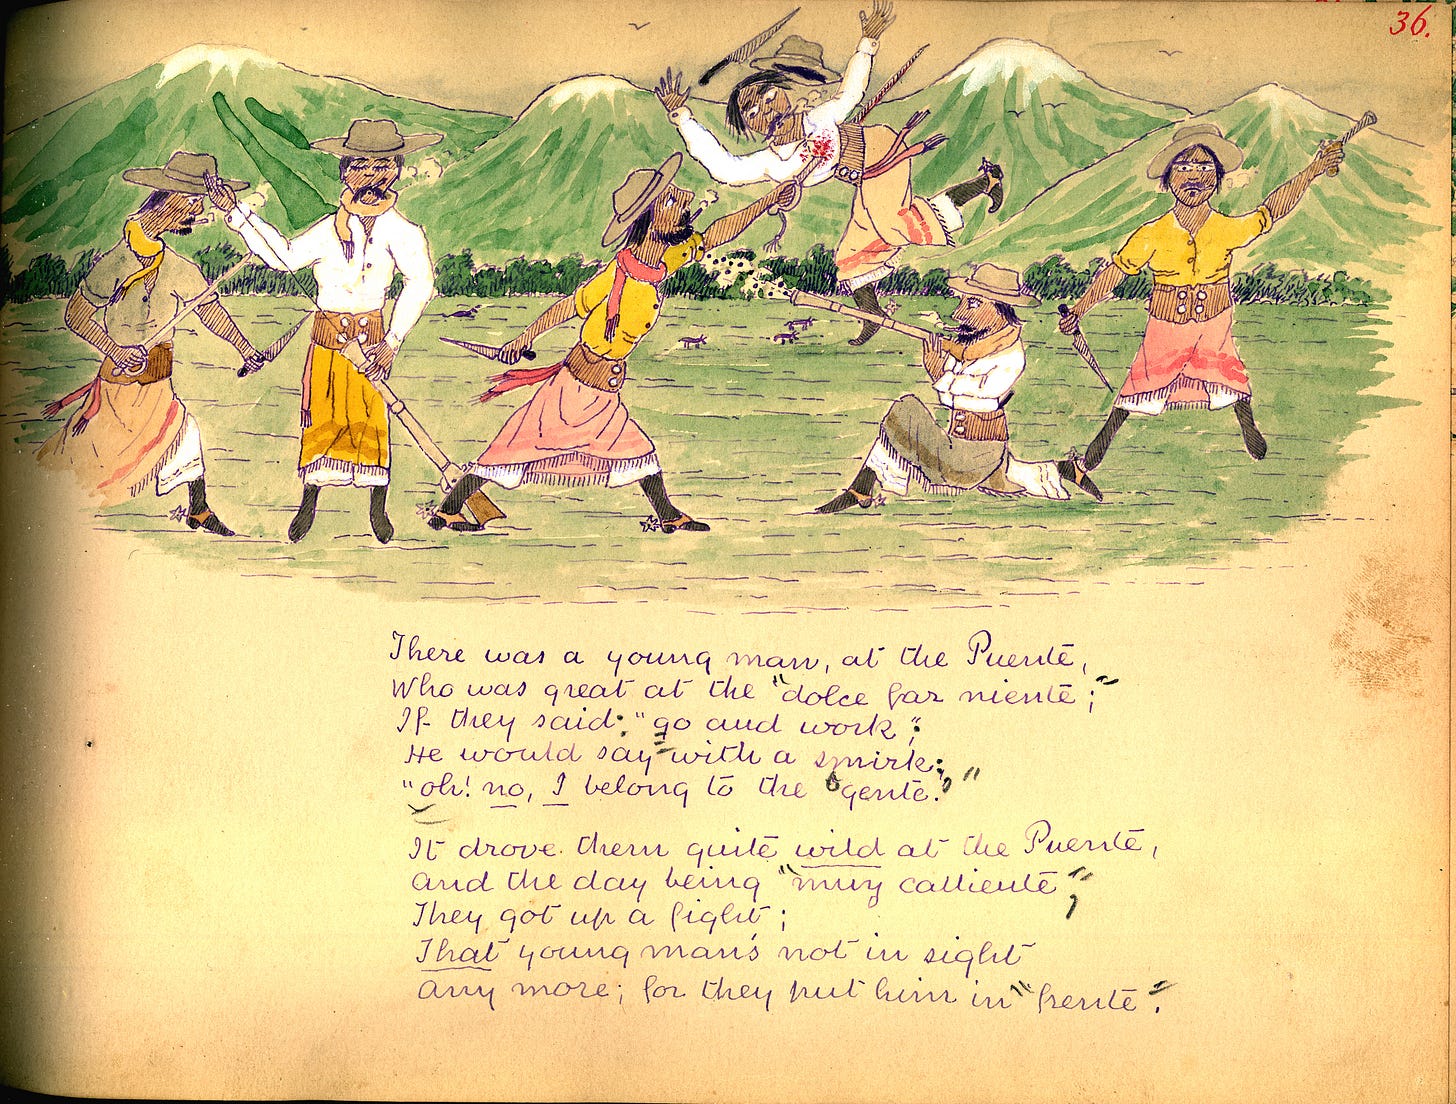 36.
There was a young man, at the Puente,
Who was great at the "dolce far niente;"
If they said: "go and work";
He would say with a smirk:,
"oh! no, I belong to the "gente."
It drove them quite wild at the Puente,
and the day being "muy calliente",
They got up a fight;
That young man's not in sight
any more; for they put him in "frente".